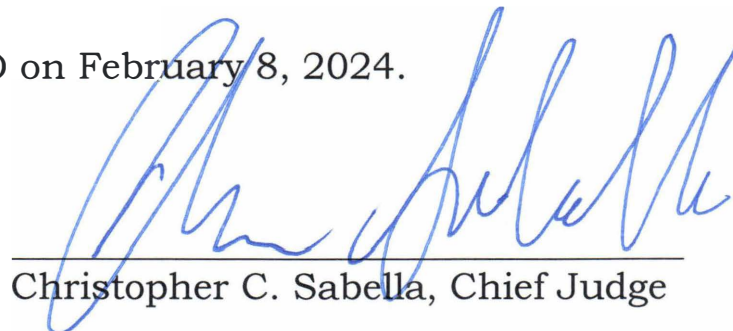 on February 8, 2024.
Christopher C. Sabella, Chief Judge